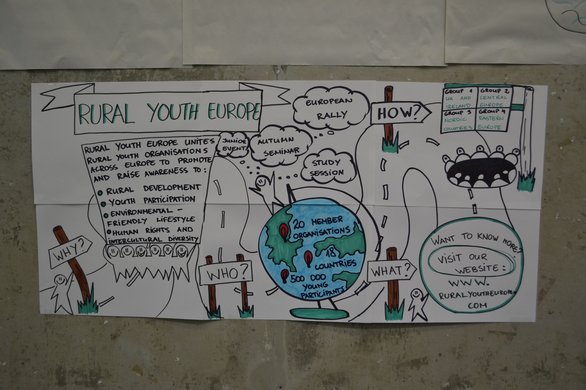 RURAL YOUTH EUROPE
RURAL YOUTH EUROPE UNITES
RURAL YOUTH ORGANISATIONS
ACROSS EUROPE TO PROMOTE
AND RAISE AWARENESS TO:
RURAL DEVELOPMENT
YOUTH PARTICIPATION
ENVIRONMENTAL-
FRIENDLY LIFESTYLE
HUMAN RIGHTS AND
INTERCULTURAL DIVERSITY
WHY?
WHO?
JUNIOR
EVENT
AUTUMN
SEMINAR
EUROPEAN
RALLY
STUDY
SESSION
20 MEMBER
ORGANISATIONS
18
COUNTRIES
500 000
YOUNG
PARTICIPANTS
HOW?
WHAT?
GROUP 1
UK AND
IRELAND
GROUP 2
CENTRAL
EUROPE
GROUP 3
NORDIC
COUNTRIES
GROUP 4
EASTERN
EUROPE
WANT TO KNOW MORE?
VISIT OUR
WEBSITE:
WWW.
RURALYOUTHEUROPE.
COM